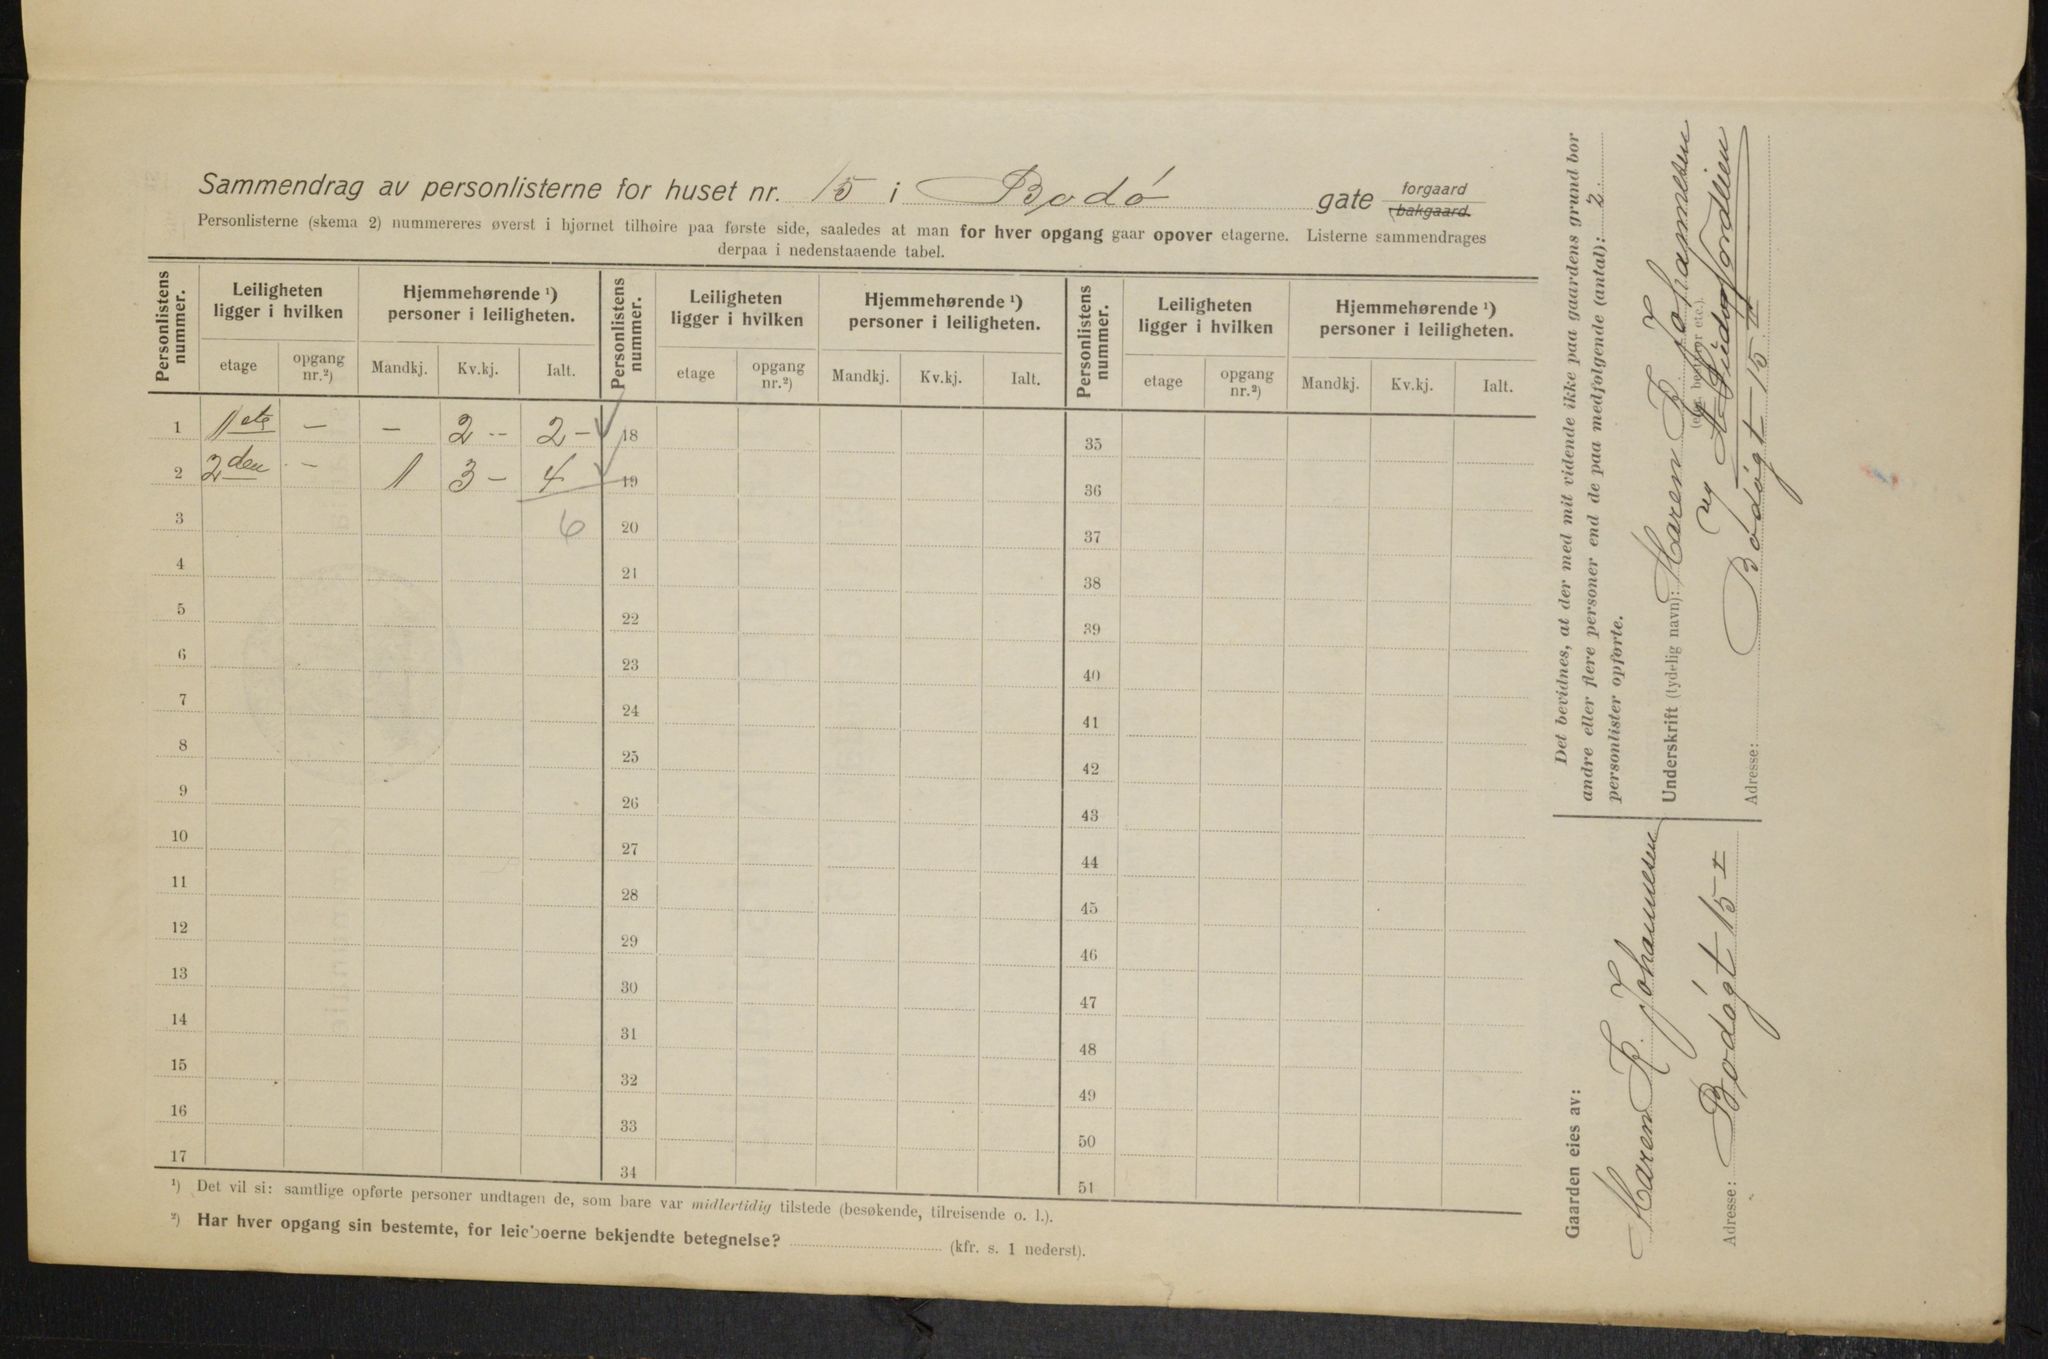 Sammendrag av personlisterne for huset nr. 15 i Bodó gate forgaard
bakgaard.
Personlisterne (skema 2) nummereres øverst i hjørnet tilhøire paa første side, saaledes at man for hver opgang gaar opover etagerne. Listerne sammendrages
derpaa i nedenstaaende tabel.
Personlistens nummer. Leiligheten ligger i hvilken Hjemmehørende ¹) personer i leiligheten. Personlistens nummer. Leiligheten ligger i hvilken Hjemmehørende ¹) personer i leiligheten. Personlistens nummer. Leiligheten ligger i hvilken Hjemmehørende ¹) personer i leiligheten.
etage opgang nr.²) Mandkj. Kv.kj. Ialt. etage opgang nr.²) Mandkj. Kv.kj. Ialt. etage opgang nr.²) Mandkj. Kv.kj. Ialt.
1 1ste — — 2 -- 2 — 18 35
2 2den — 1 3 — 4 19 36
3 6 20 37
4 21 38
5 22 39
6 23 40
7 24 41
8 25 42
9 26 43
10 27 44
11 28 45
12 29 46
13 30 47
14 31 48
15 32 49
16 33 50
17 34 51
¹) Det vil si: samtlige opførte personer undtagen de, som bare var midlertidig tilstede (besøkende, tilreisende o. l.).
²) Har hver opgang sin bestemte, for leieboerne bekjendte betegnelse? (kfr. s. 1 nederst).
Det bevidnes, at der med mit vidende ikke paa gaardens grund bor
andre eller flere personer end de paa medfølgende (antal): 2
personlister opførte.
Underskrift (tydelig navn): Maren K Johannesen
(eier, bestyrer etc.).
Adresse: Bodógt 15 II
Gaarden eies av:
Maren K. Johannesen
Adresse: Bodógt 15 I